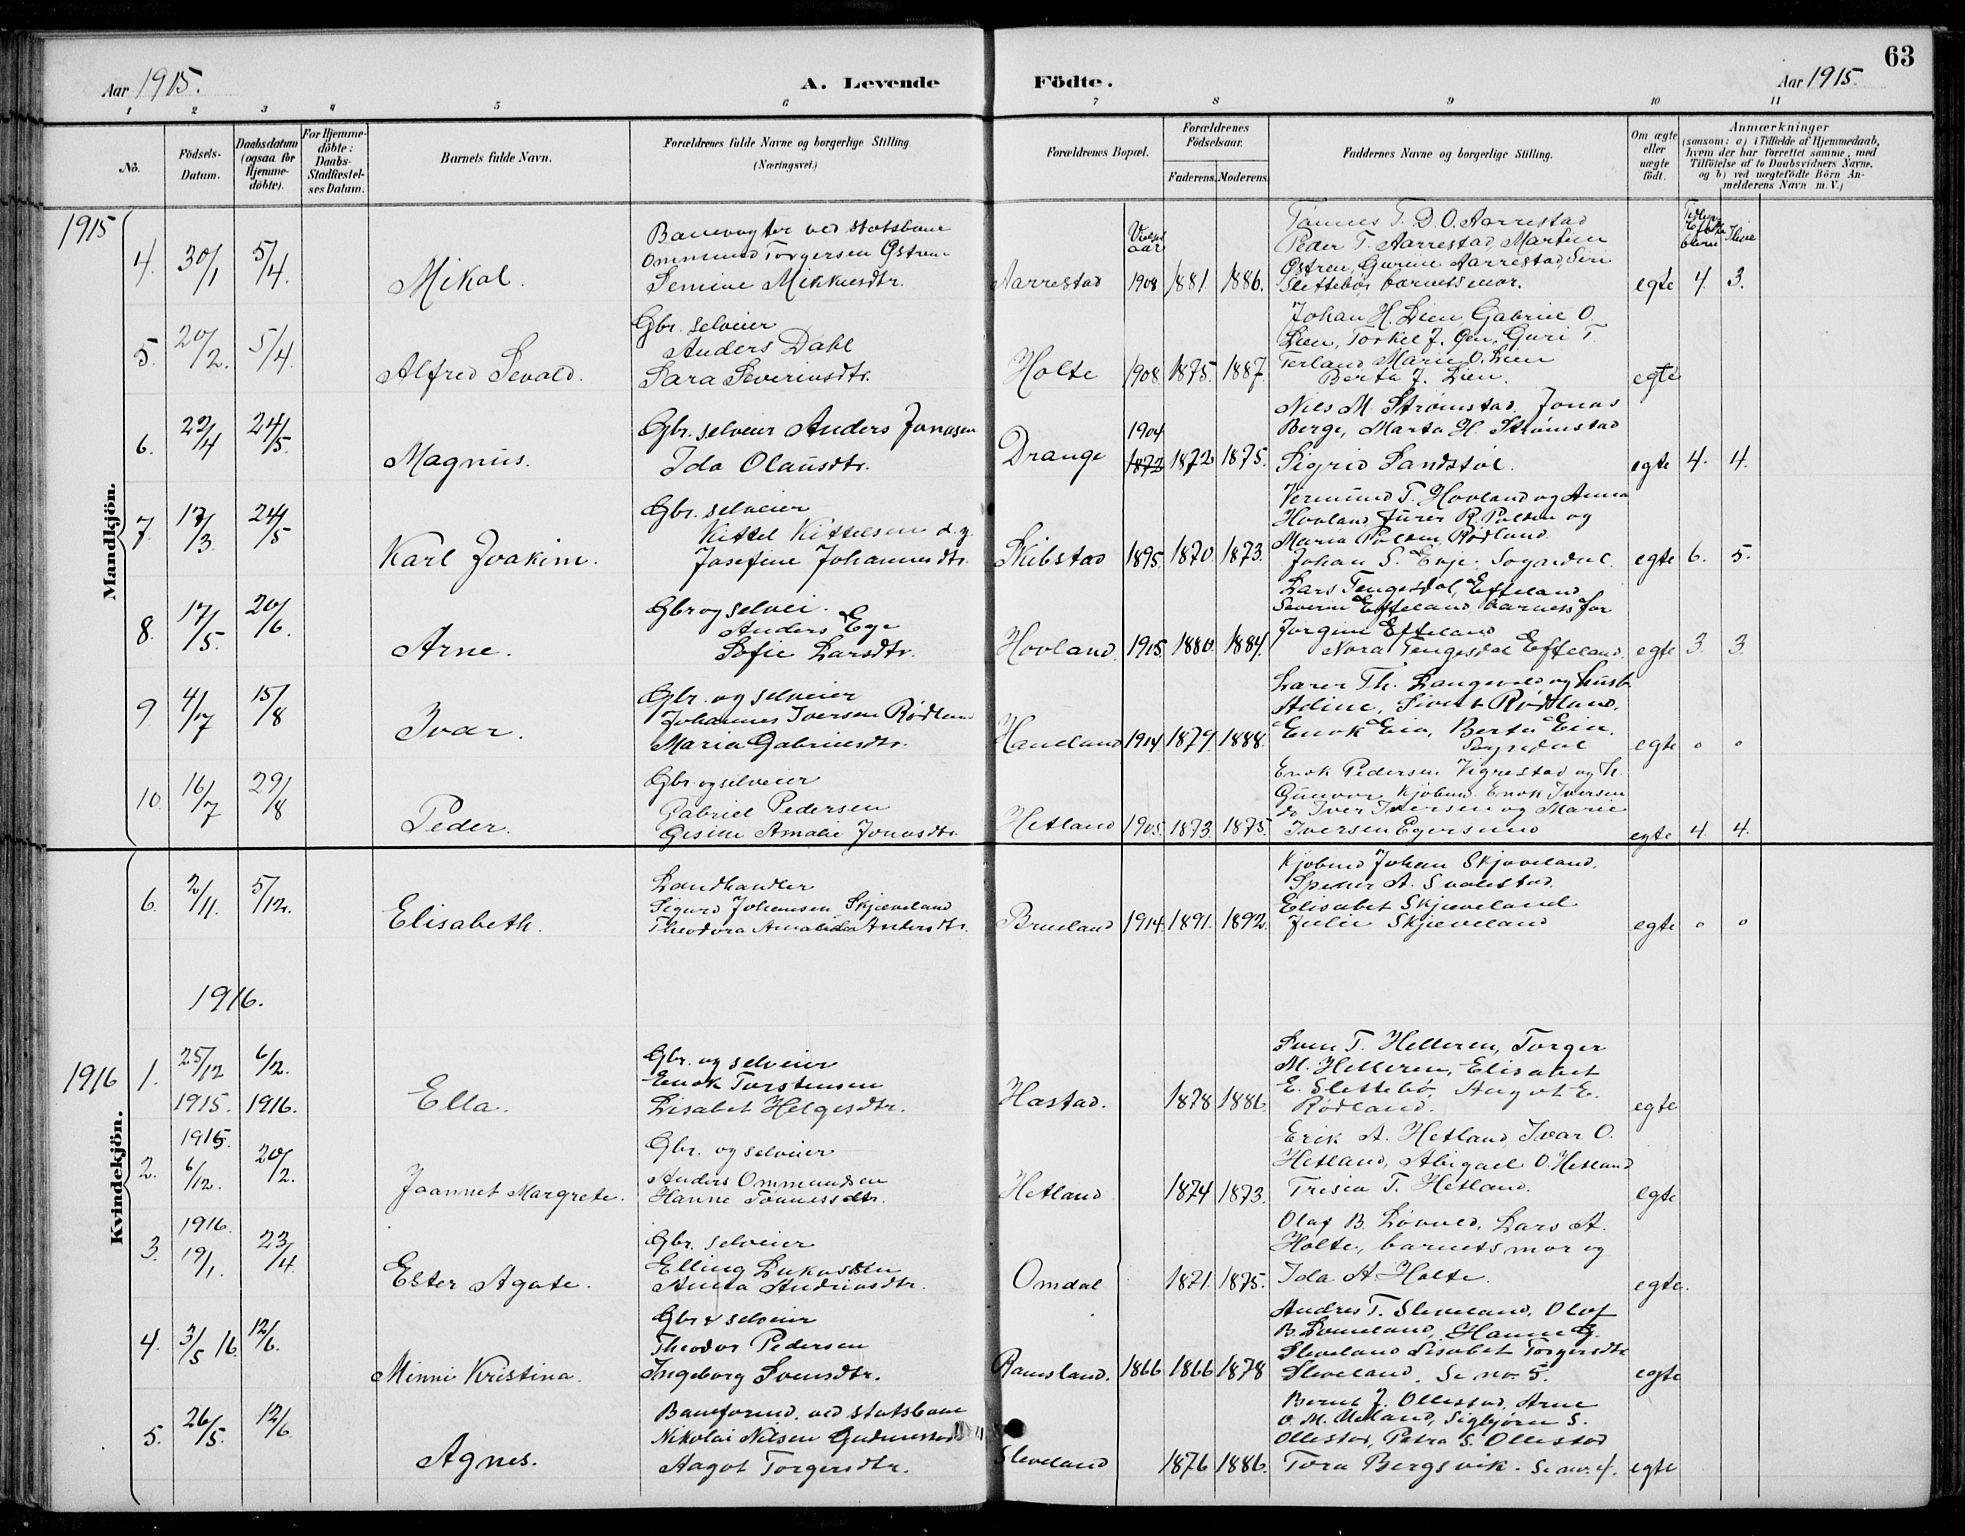 63
Aar 1915.
A. Levende Födte.
Aar 1915.
1 2 3 4 5 6 7 8 9 10 11
No.
Födsels-Datum.
Daabsdatum (ogsaa for Hjemme-döbte).
For Hjemme-döbte: Daabs-Stadfæstel-ses Datum.
Barnets fulde Navn.
Forældrenes fulde Navne og borgerlige Stilling.
(Næringsvei.)
Forældrenes Bopæl.
Forældrenes Födselsaar.
Faderens. Moderens.
Faddernes Navne og borgerlige Stilling.
Om ægte eller uægte födt.
Anmærkninger
(saasom: a) i Tilfælde af Hjemmedaab,
hvem der har forrettet samme, med
Tilföielse af to Daabsvidners Navne,
og b) ved uægtefödte Börn An-
melderens Navn m. V.)
Mandkjön.
1915
4. 30/1 5/4.
Mikal.
Banevogter ved statsbane
Ommund Torgersen Østren
Semine Mikkelsdtr.
Aarrestad
Vielses aar
1908 1881 1886.
Tønnes T. D. O. Aarrestad
Peder T. Aarrestad, Martin
Østren, Gurine Aarrestad, Siri
Slettebø, barnets mor.
egte 4. 3.
5. 20/2. 5/4
Alfred Sevald.
Gbr. selveier
Anders Dahl
Sara Severinsdtr.
Holte 1908. 1875. 1887.
Johan H. Lien, Gabriel O.
Lien, Torkel J. Øen, Guri T.
Terland, Marie O. Lien
Berta J. Lien.
egte
6. 22/4 24/5.
Magnus.
Gbr. selveier Anders Jonasen
Ida Olausdtr.
Drange
1904
1872 1872 1875.
Nils M. Strømstad, Jonas
Berge, Marta H. Strømstad
Sigrid Sandstøl.
egte 4. 4.
7. 17/3 24/5
Karl Joakim.
Gbr. selveier
Kittel Kittelsen d. y.
Josefine Johannesdtr.
Skibstad 1895. 1870. 1873.
Vermund T. Hovland og Anna
Hovland, furer R. Polden og
Maria Polden, Rødland
Johan S. Eije. Sogndal.
egte 6. 5.
8. 17/5. 20/6.
Arne.
Gbr og selvei.
Anders Ege
Sofie Larsdtr.
Hovland. 1915. 1880. 1884.
Lars Tengesdal, Effeland
Severin Effeland, barnets far
Jørgine Effeland
Nora Tengesdal Effeland.
egte 3. 3.
9. 4/7 15/8
Ivar.
Gbr. og selveier
Johannes Iversen Rødland
Maria Gabrielsdtr.
Haneland 1914. 1879 1888.
Larer Th. Langevold og hustr.
Adine, Sivert Rødland.
Enok Eia, Berta Eia.
Sogndal
egte 0 0
10. 16/7 29/8
Peder.
Gbr. og selveier
Gabriel Pedersen
Gesine Amalie Jonasdtr.
Hetland 1905. 1873. 1875.
Enok Pedersen Vigrestad og h.
Gunvor, kjøbmd. Enok Iversen
do Iver Iversen og Marie
Iversen Egersund
egte 4. 4.
Kvindekjön.
6. 2/11. 5/12.
Elisabeth.
Landhandler
Sigurd Johansen Skjæveland
Theodora Amalie Andersdtr.
Brueland 1914. 1891. 1892.
Kjøbmd Johan Skjæveland.
A. Svalestad.
Elisabet Skjæveland
Julie Skjæveland
egte 0 0
1916.
1916 1. 25/12 1915. 6/2. 1916.
Ella.
Gbr. og selveier
Enok Torstensen
Lisabet Helgesdtr.
Hæstad. 1878 1886.
Sven T. Helleren, Torger
M. Helleren, Elisabet
E. Slettebø, Angot E.
Rødland.
egte
2. 1915. 6/12. 20/2.
Joannet Margrete.
Gbr. og selveier
Anders Ommundsen
Hanne Tønnesdtr.
Hetland. 1874 1873.
Erik A. Hetland, Ivar O.
Hetland, Abigael O. Hetland
Tresia T. Hetland.
egte
3. 1916. 19/1. 23/4.
Ester Agate.
Gbr. selveier
Elling Lukassen
Anna Andreasdtr.
Omdal 1871. 1875.
Olaf B. Lømeld, Lars A.
Holte, barnets mor og
Ida A. Holte.
egte.
4. 3/5 16. 12/6.
Minni Kristina.
Gbr & selveier
Theodor Pedersen
Ingeborg Svensdtr.
Ramsland. 1866 1866 1878
Andres T. Sleveland, Olaf
B. Lomeland, Hanne G.
Sleveland Lisabet Torgersdtr
Sleveland. Se no. 5.
egte
5. 26/5. 12/6.
Agnes.
Baneformd. ved statsbane
Nikolai Nilsen Gudmestad
Aagot Torgersdtr.
Sleveland 1876 1886.
Bernt J. Ollestad, Arne
O. M. Uelland, Sigbjørn S.
Ollestad, Petra S. Ollestad
Tora Bergsvik. Se no. 4.
egte